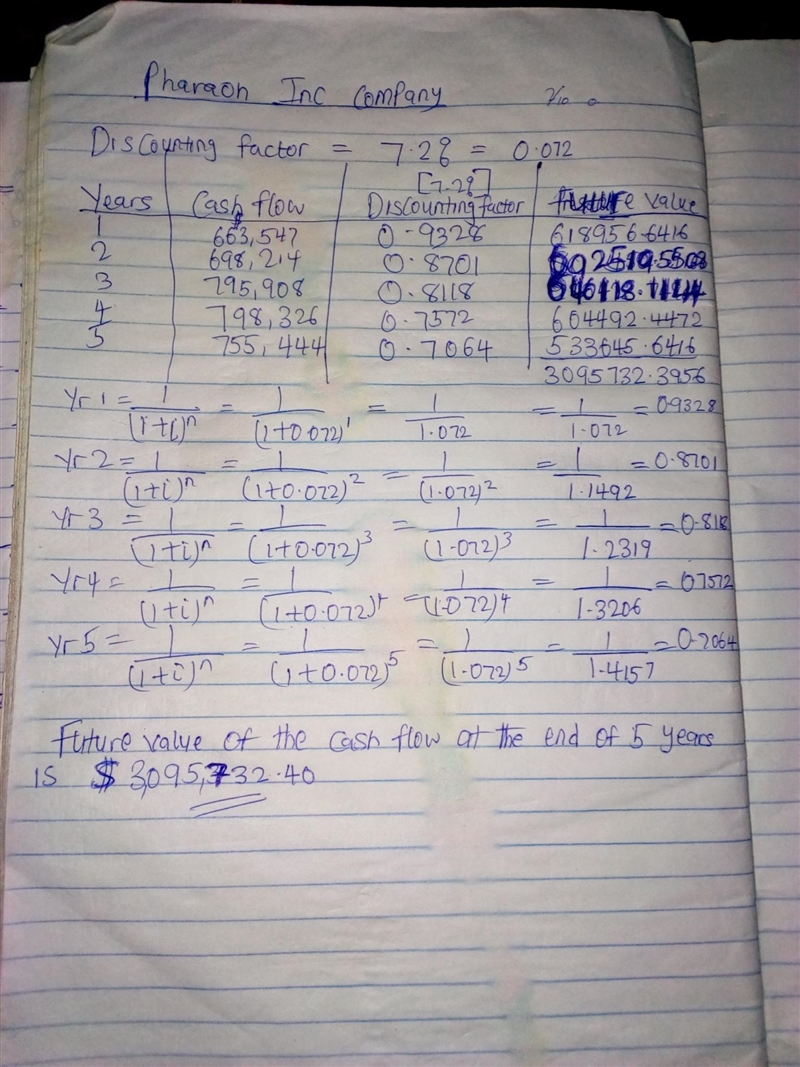 Pharaoh Inc Company
Discounting factor = 7.2% = 0.072
[7.2%]
Years Cash flow Discounting factor Future value
1 $ 663,547 0.9328 618956.6416
2 698,214 0.8701
3 795,908 0.8118
4 798,326 0.7572 604492.4472
5 755,444 0.7064 533645.6416
3095732.3956
Yr 1 = 1/(1+i)^n = 1/(1+0.072)^1 = 1/1.072 = 1/1.072 = 0.9328
Yr 2 = 1/(1+i)^n = 1/(1+0.072)^2 = 1/(1.072)^2 = 1/1.1492 = 0.8701
Yr 3 = 1/(1+i)^n = 1/(1+0.072)^3 = 1/(1.072)^3 = 1/1.2319 = 0.818
Yr 4 = 1/(1+i)^n = 1/(1+0.072)^4 = 1/(1.072)^4 = 1/1.3206 = 0.7572
Yr 5 = 1/(1+i)^n = 1/(1+0.072)^5 = 1/(1.072)^5 = 1/1.4157 = 0.7064
Future value of the cash flow at the end of 5 years
is $ 3,095,732.40